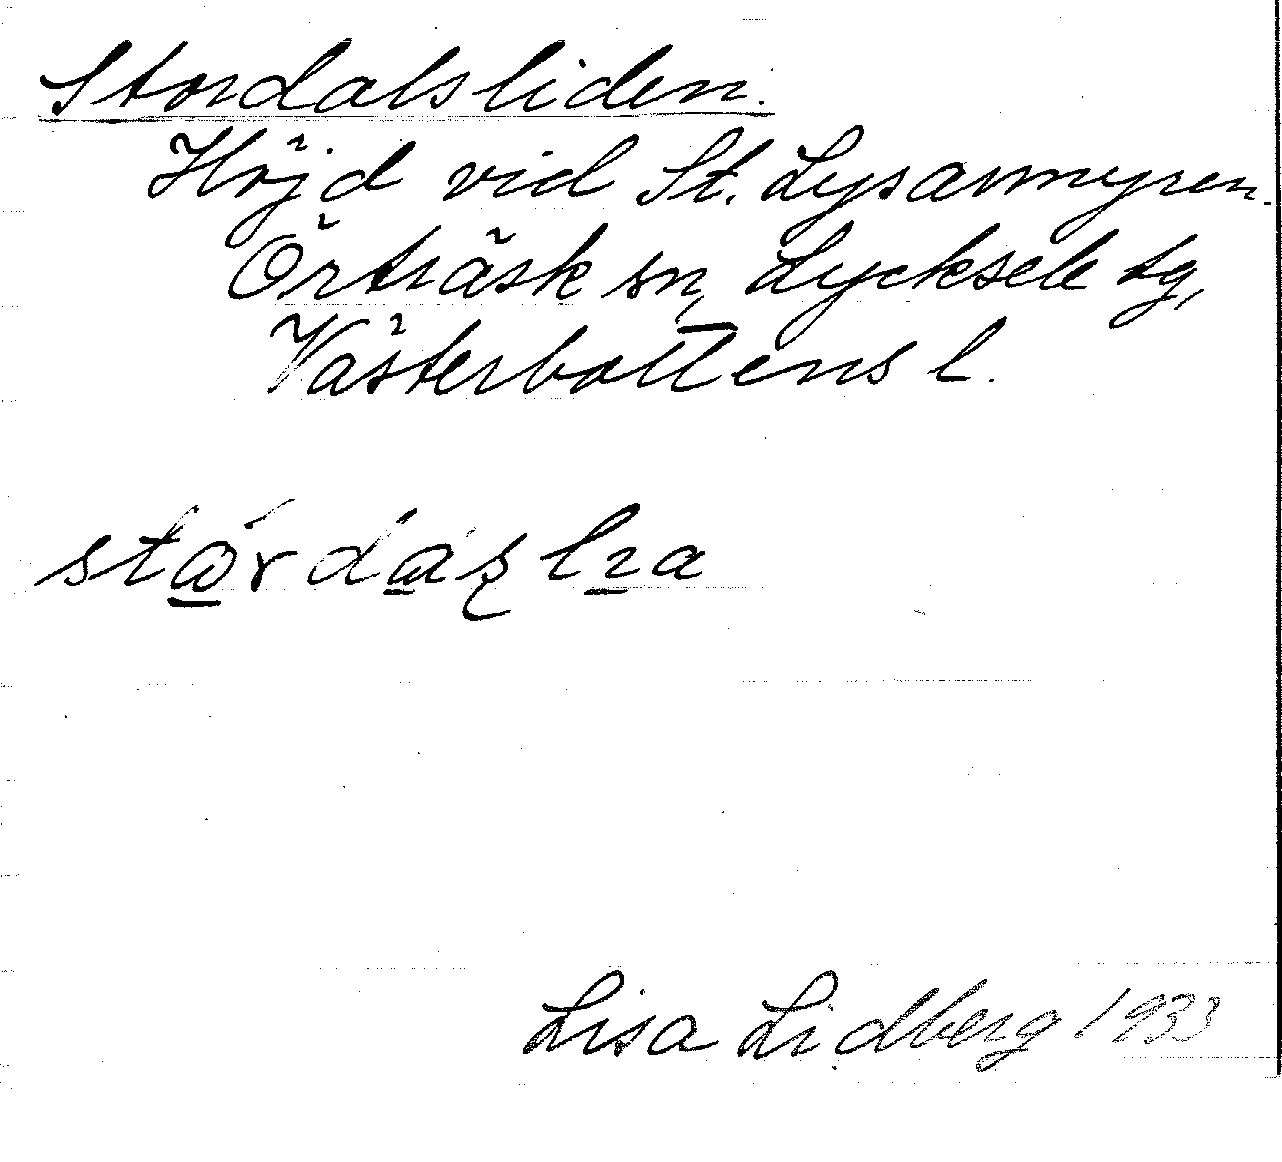 Stordalsliden.
Höjd vid St. Lysarmyren.
Örträsk sn, Lycksele tg,
Västerbottens l.
Lisa Lidberg 1933